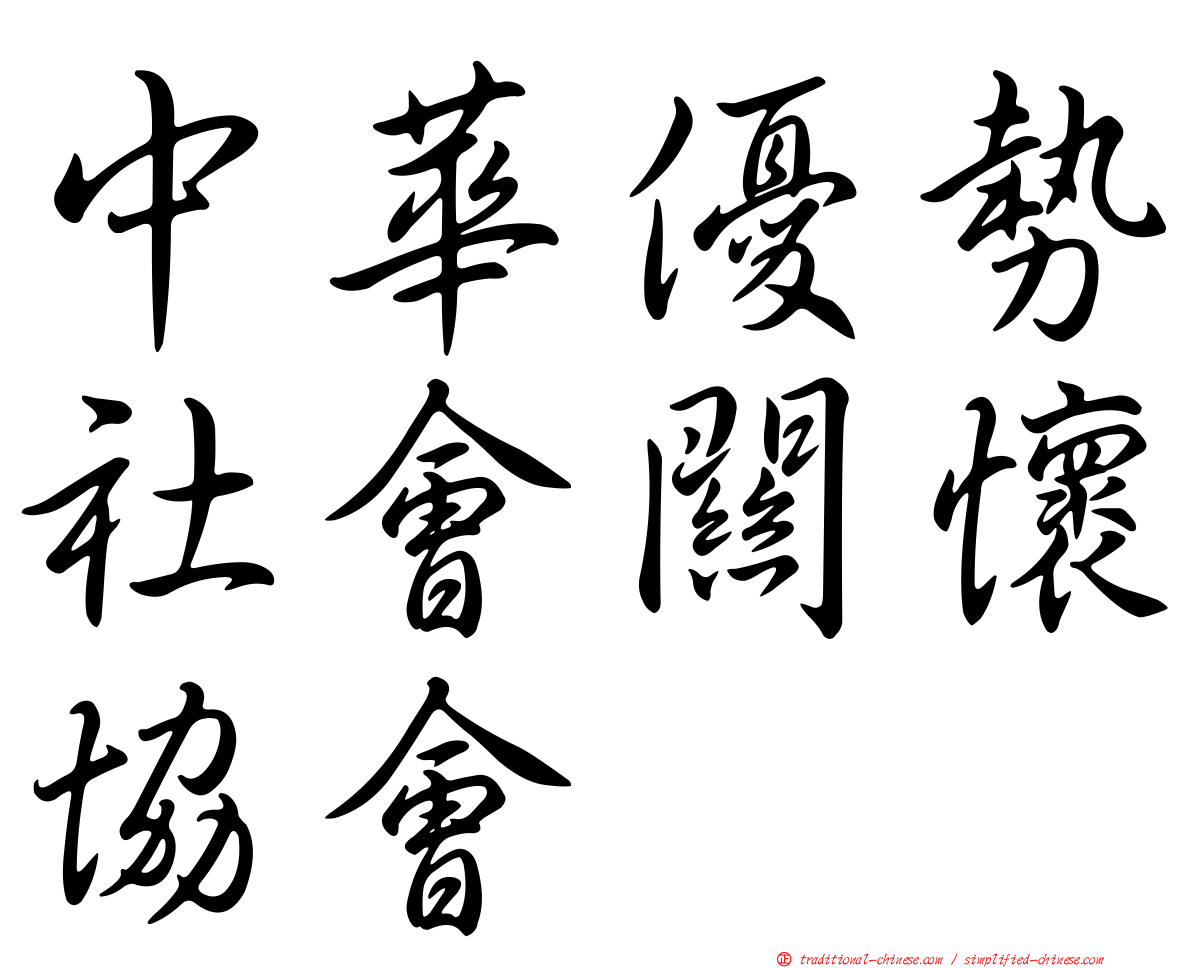 中華優勢
社會關懷
協會
正 traditional-chinese.com / simplified-chinese.com